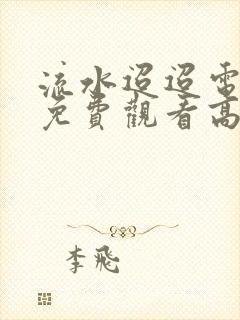 流水迢迢電
免費觀看高
李飛